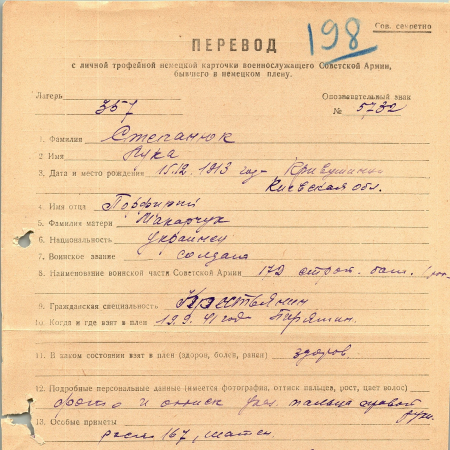 198
Сов. секретно
ПЕРЕВОД
с личной трофейной немецкой карточки военнослужащего Советской Армии,
бывшего в немецком плену.
Лагерь 357
Опознавательный знак
№ 5732
1. Фамилия Степанюк
2. Имя Лука
3. Дата и место рождения 15.12.1913 год-
Киевская обл.
4. Имя отца Порфирий
5. Фамилия матери Макарчук
6. Национальность украинец
7. Воинское звание солдат
8. Наименование воинской части Советской Армии 172 строт. бат.
9. Гражданская специальность Крестьянин
10. Когда и где взят в плен 19.9.41 год Пирятин.
11. В каком состоянии взят в плен (здоров, болен, ранен) здоров
12. Подробные персональные данные (имеется фотография, оттиск пальцев, рост, цвет волос)
фото и оттиск указ. пальца правой
руки.
13. Особые приметы
рост 167, шатен.